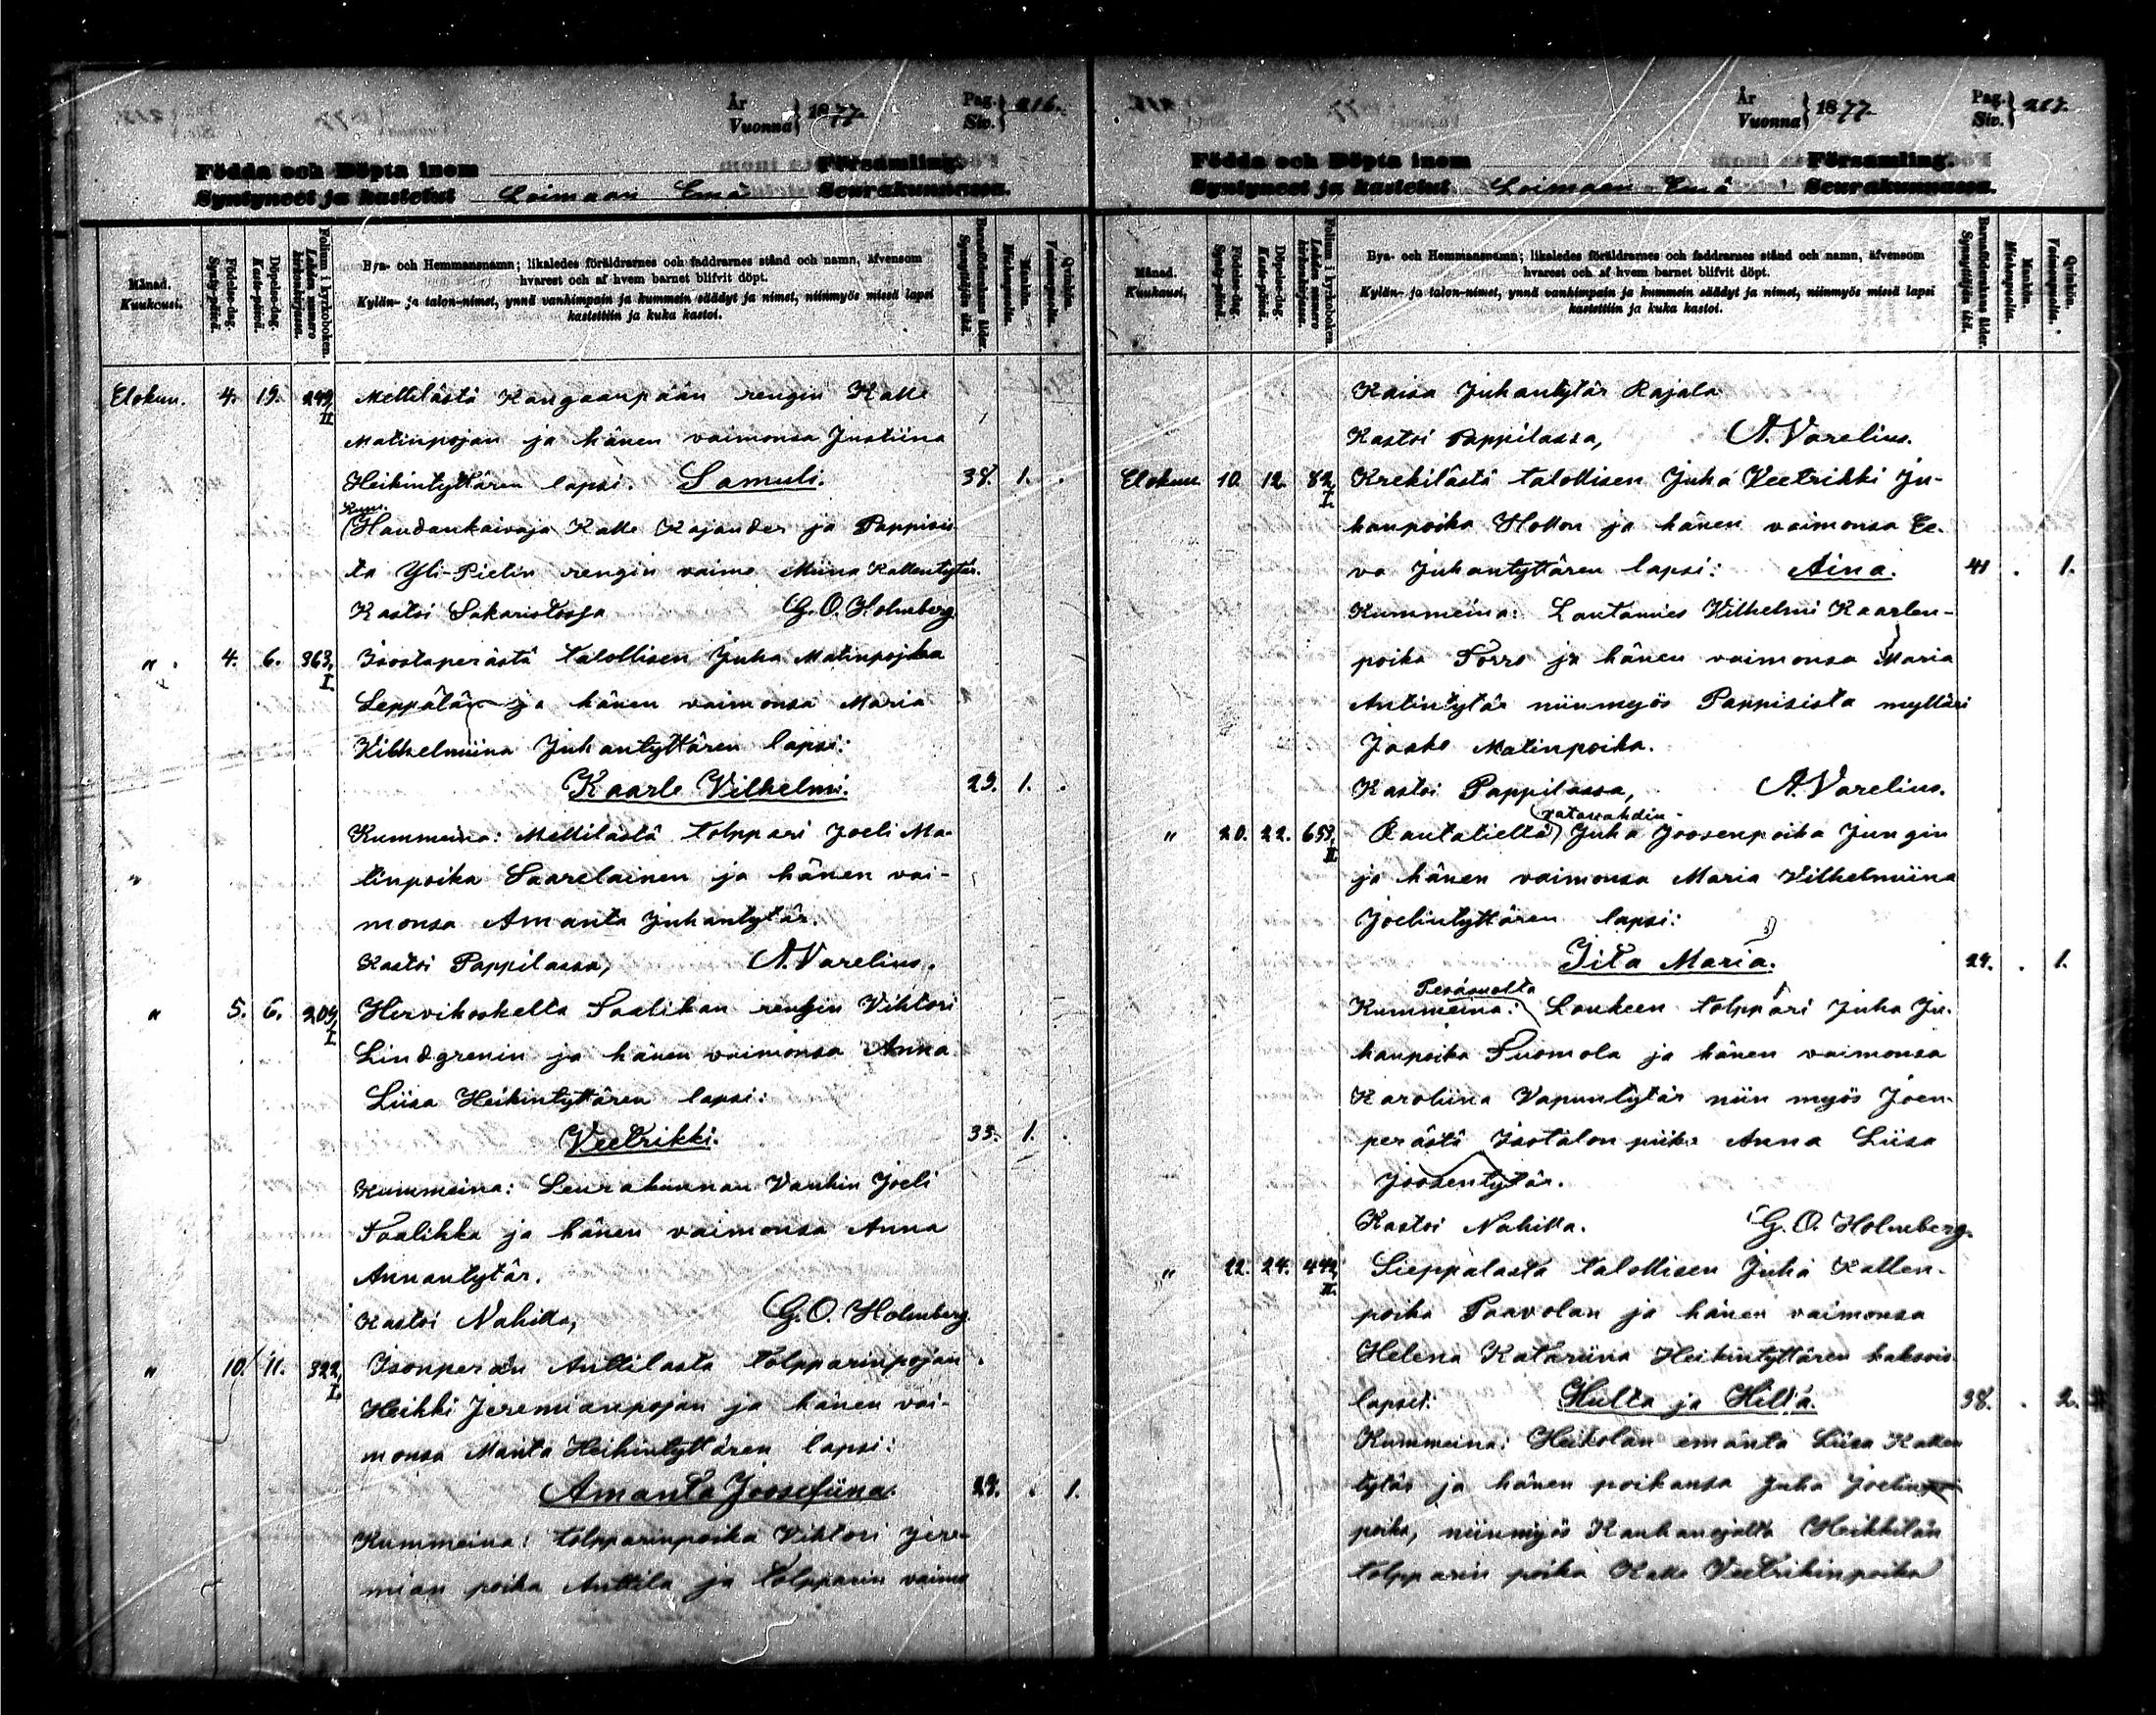 År
Vuonna } 1877.
Pag.
Siv. } 216.
Födda och Döpta inom Församling.
Syntyneet ja kastetut Loimaan Emä Seurakunnassa.
Månad.
Kuukausi.
Födelse-dag.
Synty-päivä.
Döpelse-dag.
Kaste-päivä.
Folium i kyrkoboken.
Lehden numero kirkonkirjassa.
Bya- och Hemmansnamn; likaledes föräldrarnes och faddrarnes stånd och namn, äfvensom
hvarest och af hvem barnet blifvit döpt.
Kylän- ja talon-nimet, ynnä vanhimpain ja kummein säädyt ja nimet, niinmyös missä lapsi
kastettiin ja kuka kastoi.
Barnaföderskans ålder.
Synnyttäjän ikä.
Mankön.
Miehenpuolia.
Qvinkön.
Vaimonpuolia.
Elokuu. 4. 19. 249, II Mellilästä Kangaanpään rengin Kalle
Matinpojan ja hänen vaimonsa Justiina
Heikintyttären lapsi. Samuli. 38. 1. .
Kum.
Haudankaivaja Kalle Kajander ja Pappisis
ta Yli-Pietin rengin vaimo Miina Kallentytär.
Kastoi Sakaristossa G. O. Holmberg
" . 4. 6. 363, I. Isostaperästä talollisen Juha Matinpojka
Leppälän ja hänen vaimonsa Maria
Vilhelmiina Juhantyttären lapsi:
Kaarle Vilhelmi. 29. 1. .
Kummeina: Mellilästä tolppari Joeli Ma-
tinpoika Saarelainen ja hänen vai-
monsa Amanta Juhantytär.
Kastoi Pappilassa, A. Varelius.
" 5. 6. 209, I Hirvikoskelta Saalikan rengin Vihtori
Lindgrenin ja hänen vaimonsa Anna
Liisa Heikintyttären lapsi:
Veetrikki. 33. 1. .
Kummeina: Seurakunnan Vanhin Joeli
Saalikka ja hänen vaimonsa Anna
Annantytär.
Kastoi Nahilla, G. O. Holmberg
" 10. 11. 322, I. Isonperän Anttilasta tolpparinpojan
Heikki Jeremianpojan ja hänen vai-
monsa Manta Heikintyttären lapsi:
Amanta Joosefiina. 29. . 1.
Kummeina: tolpparinpoika Vihtori Jere-
mian poika Anttila ja tolpparin vaimo
År
Vuonna } 1877.
Pag.
Siv. } 217.
Födda och Döpta inom Församling.
Syntyneet ja kastetut Loimaan Emä Seurakunnassa.
Månad.
Kuukausi.
Födelse-dag.
Synty-päivä.
Döpelse-dag.
Kaste-päivä.
Folium i kyrkoboken.
Lehden numero kirkonkirjassa.
Bya- och Hemmansnamn; likaledes föräldrarnes och faddrarnes stånd och namn, äfvensom
hvarest och af hvem barnet blifvit döpt.
Kylän- ja talon-nimet, ynnä vanhimpain ja kummein säädyt ja nimet, niinmyös missä lapsi
kastettiin ja kuka kastoi.
Barnaföderskans ålder.
Synnyttäjän ikä.
Mankön.
Miehenpuolia.
Qvinkön.
Vaimonpuolia.
Kaisa Juhantytär Rajala
Kastoi Pappilassa, A. Varelius.
Elokuu 10. 12. 82, I. Krekilästä talollisen Juha Veetrikki Ju-
hanpoika Hollon ja hänen vaimonsa Ee-
va Juhantyttären lapsi: Aina. 41 . 1.
Kummeina: Lautamies Vilhelmi Kaarlen-
poika Torro ja hänen vaimonsa Maria
Antintytär niinmyös Pappisista mylläri
Jaako Matinpoika.
Kastoi Pappilassa, A. Varelius.
ratavahdin
" 20. 22. 653, II. Rautatieltä Juha Joosenpoika Jungin
ja hänen vaimonsa Maria Vilhelmiina
Joelintyttären lapsi:
Iita Maria. 24. . 1.
Peräsuolta
Kummeina: Laukeen tolppari Juha Ju-
hanpoika Suomola ja hänen vaimonsa
Karoliina Vapuntytär niin myös Joen-
perästä Isotalon piika Anna Liisa
Joosentytär.
Kastoi Nahilla. G. O. Holmberg.
" 22. 24. 442, II. Sieppalasta talollisen Juha Kallen-
poika Paavolan ja hänen vaimonsa
Helena Katariina Heikintyttären kaksois
lapset: Hulta ja Hilta. 38. . 2.
Kummeina: Heikolan emäntä Liisa Kallen
tytär ja hänen poikansa Juha Joelin
poika, niinmyös Kauhanojalta Heikkilän
tolpparin poika Kalle Veetrikinpoika